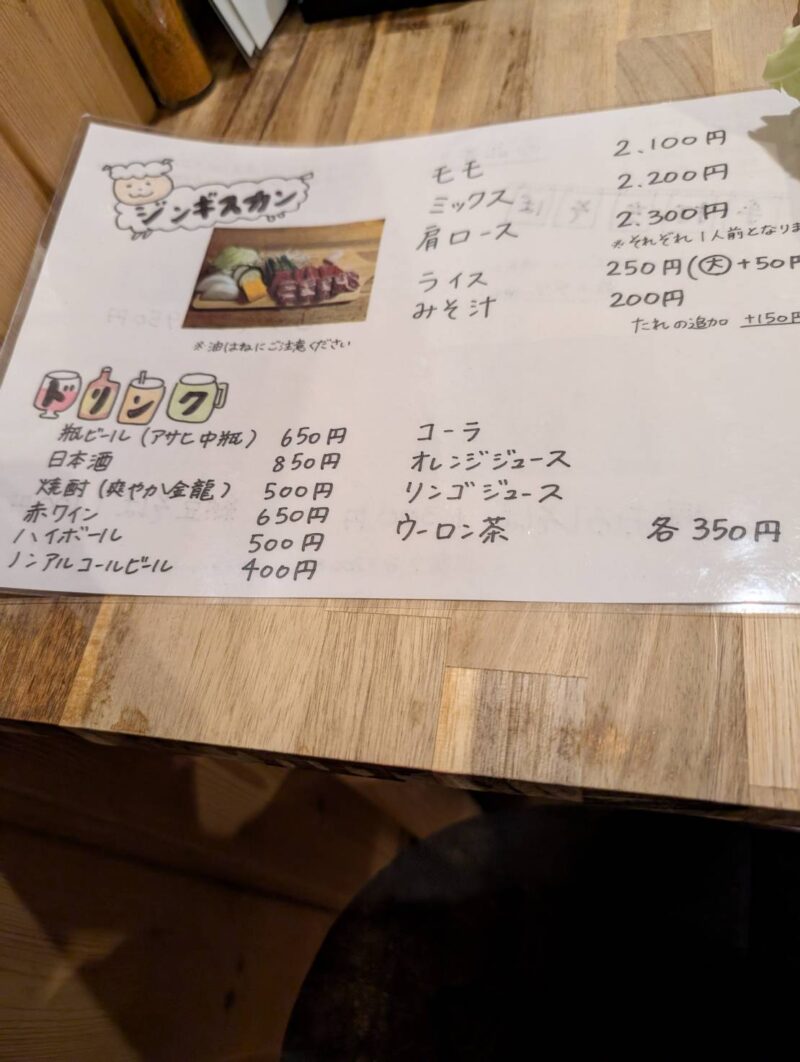 ジンギスカン
モモ 2.100円
ミックス 2.200円
肩ロース 2.300円
※それぞれ1人前となりま
ライス 250円(大)+50円
みそ汁 200円
たれの追加 +150円
※油はねにご注意ください
ドリンク
瓶ビール(アサヒ中瓶) 650円
日本酒 850円
焼酎(爽やか金龍) 500円
赤ワイン 650円
ハイボール 500円
ノンアルコールビール 400円
コーラ
オレンジジュース
リンゴジュース
ウーロン茶 各350円